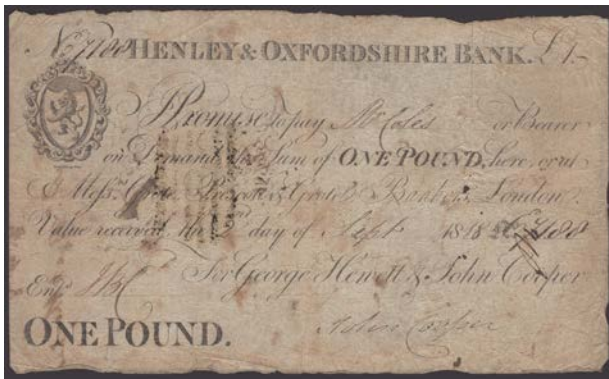 No 7188 HENLEY & OXFORDSHIRE BANK. £1-
I Promise to pay Mr Coles or Bearer
on Demand the Sum of ONE POUND, here or at
Messrs Grote, Prescott & Grote Bankers, London.
Value received the 2nd day of Sept 1818 No 7188
For George Hewett & John Cooper
Entd
John Cooper
ONE POUND.